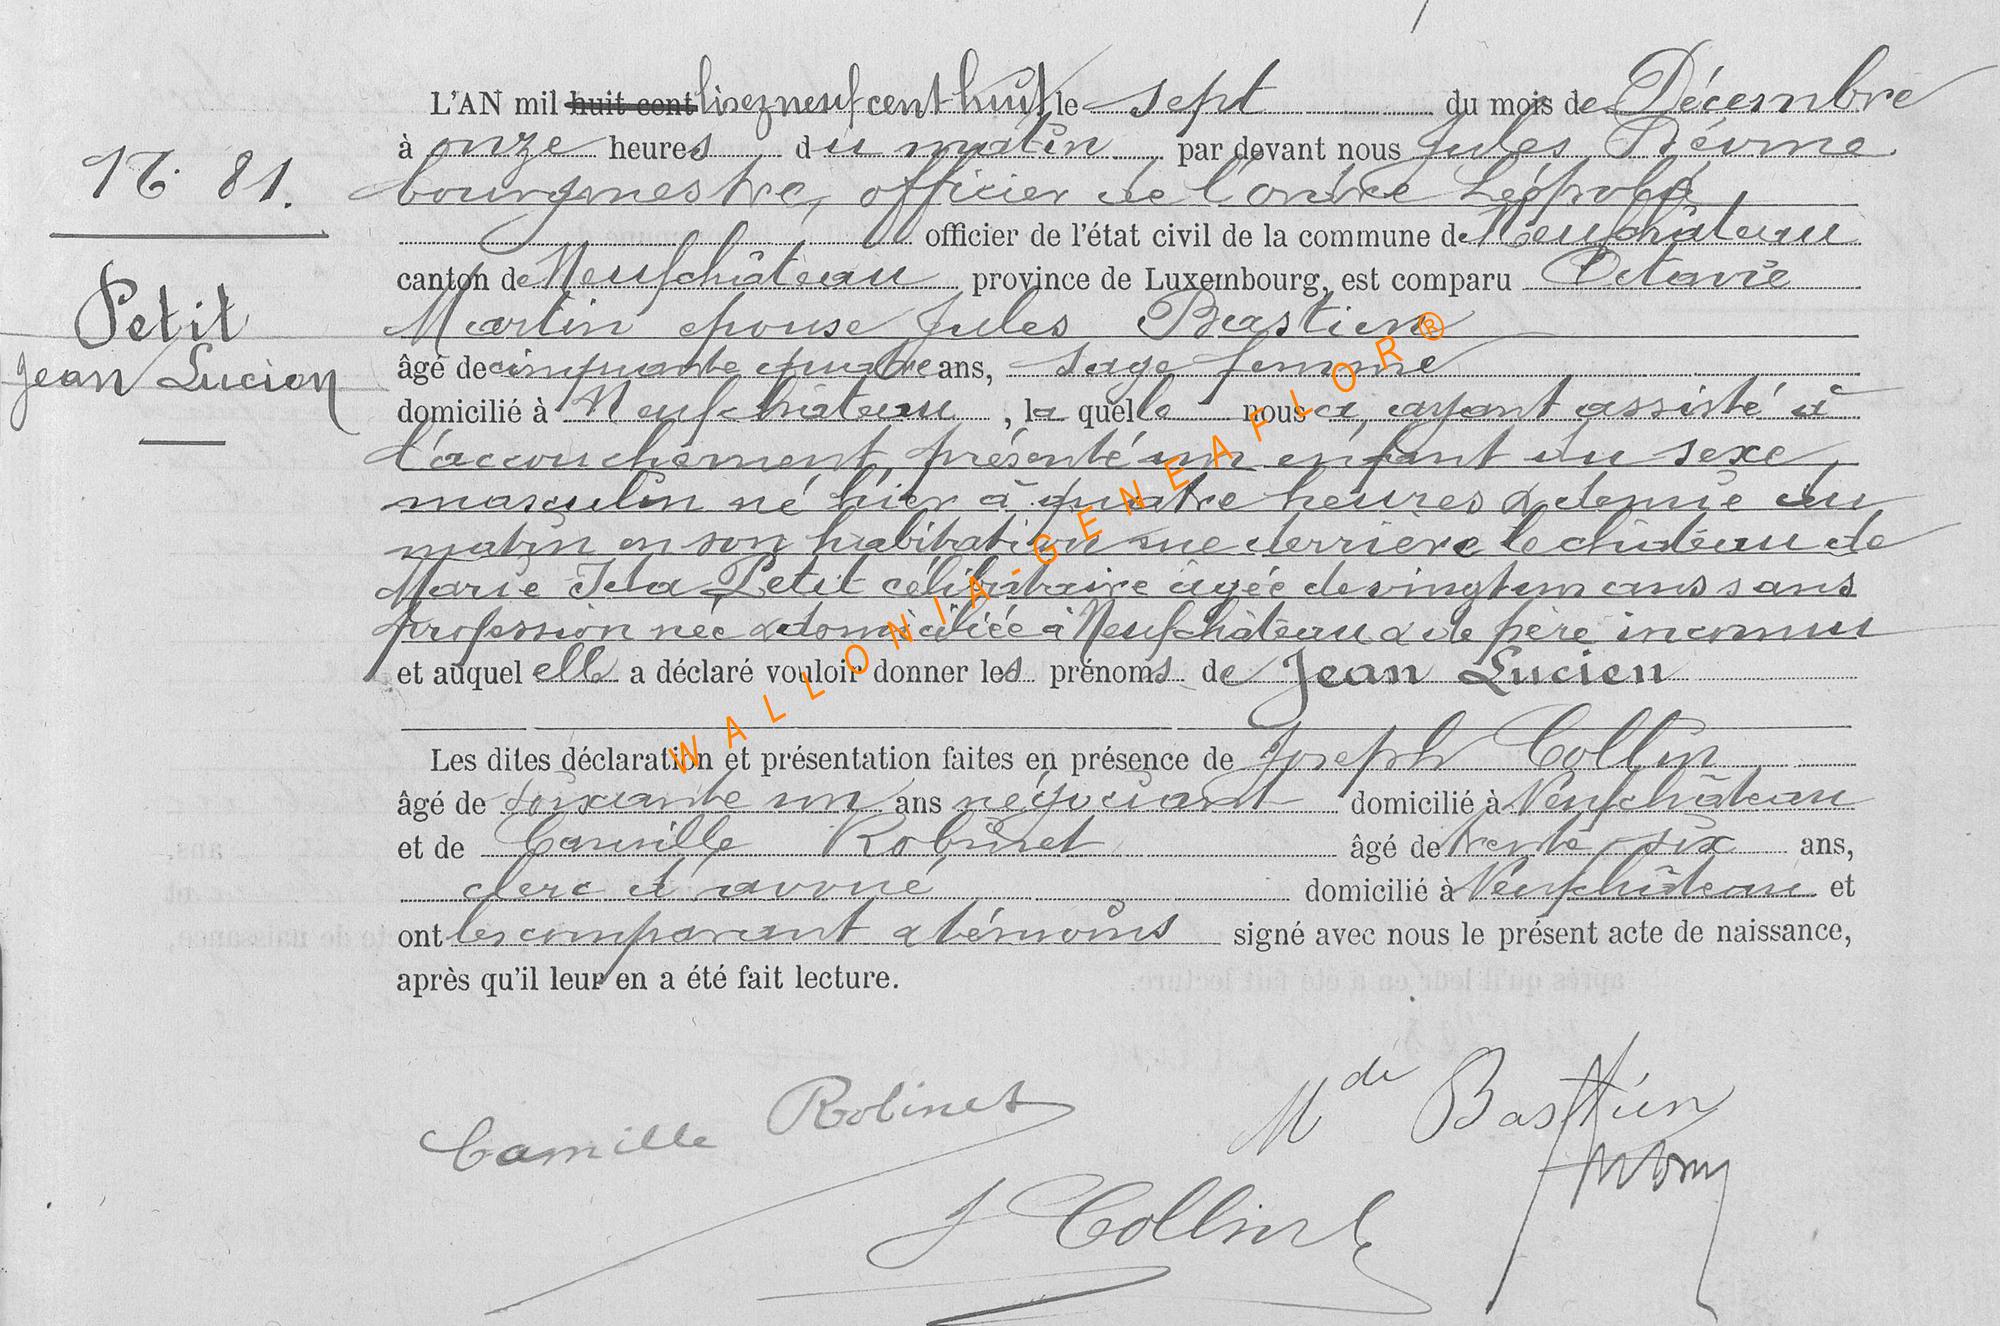 N° 81.
Petit
Jean Lucien
L'AN mil huit cent lisez neuf cent huit le sept du mois de Décembre
à onze heures du matin par devant nous Jules
bourgmestre, officier de l'ordre Léopold
officier de l'état civil de la commune de Neufchâteau
canton de Neufchâteau province de Luxembourg, est comparu Octavie
Martin épouse Jules Bastien
âgé de cinquante quatre ans, sage femme
domicilié à Neufchâteau, la quelle nous a, ayant assisté à
l'accouchement présenté un enfant du sexe
masculin né hier à quatre heures & demie du
matin en son habitation rue derrière le château de
Marie Ida Petit célibataire âgée de vingt un ans sans
profession née & domiciliée à Neufchâteau & de père inconnu
et auquel elle a déclaré vouloir donner les prénoms de Jean Lucien
Les dites déclaration et présentation faites en présence de Joseph Collin
âgé de soixante un ans négociant domicilié à Neufchâteau
et de Camille Robinet âgé de trente six ans,
clerc d'avoué domicilié à Neufchâteau et
ont les comparant & témoins signé avec nous le présent acte de naissance,
après qu'il leur en a été fait lecture.
Camille Robinet
Bastien
J Collin
WALLONIA-GENEAFLOR®